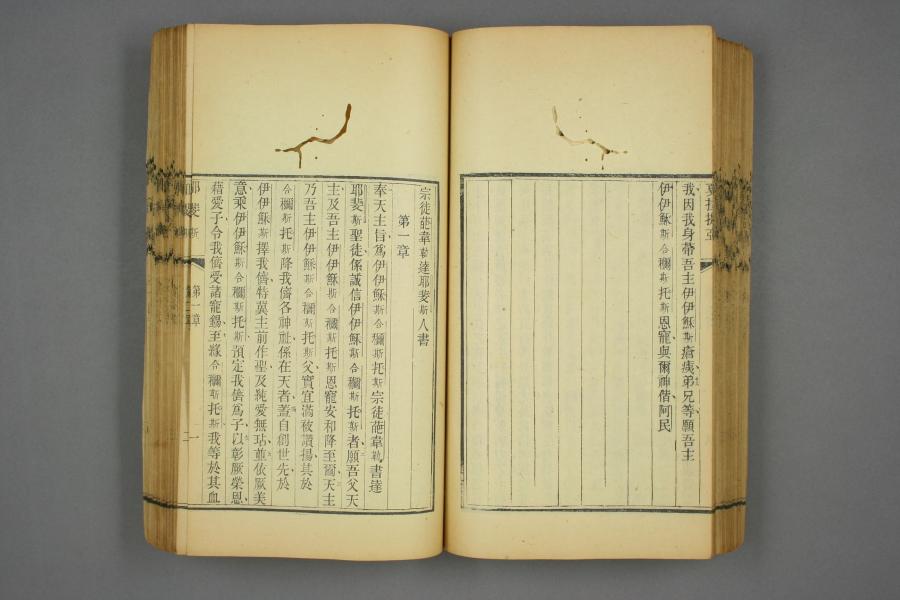 我因我身帶吾主伊伊穌斯瘡痍弟兄等願吾主
伊伊穌斯合穪斯托斯恩寵與爾神偕阿民
宗徒葩韋勒達耶斐斯人書
第一章
奉天主旨爲伊伊穌斯合穪斯托斯宗徒葩韋勒書達
耶斐斯聖徒係誠信伊伊穌斯合穪斯托斯者願吾父天
主及吾主伊伊穌斯合穪斯托斯恩寵安和降至爾天主
乃吾主伊伊穌斯合穪斯托斯父實宜滿被讚揚其於
合穪斯托斯降我儕各神祉係在天者蓋自創世先於
伊伊穌斯擇我儕特冀主前作聖及純愛無玷並依厥美
意乘伊伊穌斯合穪斯托斯預定我儕爲子以彰厥榮恩
藉愛子令我儕受諸寵錫至緣合穪斯托斯我等於其血
耶斐斯
第一章